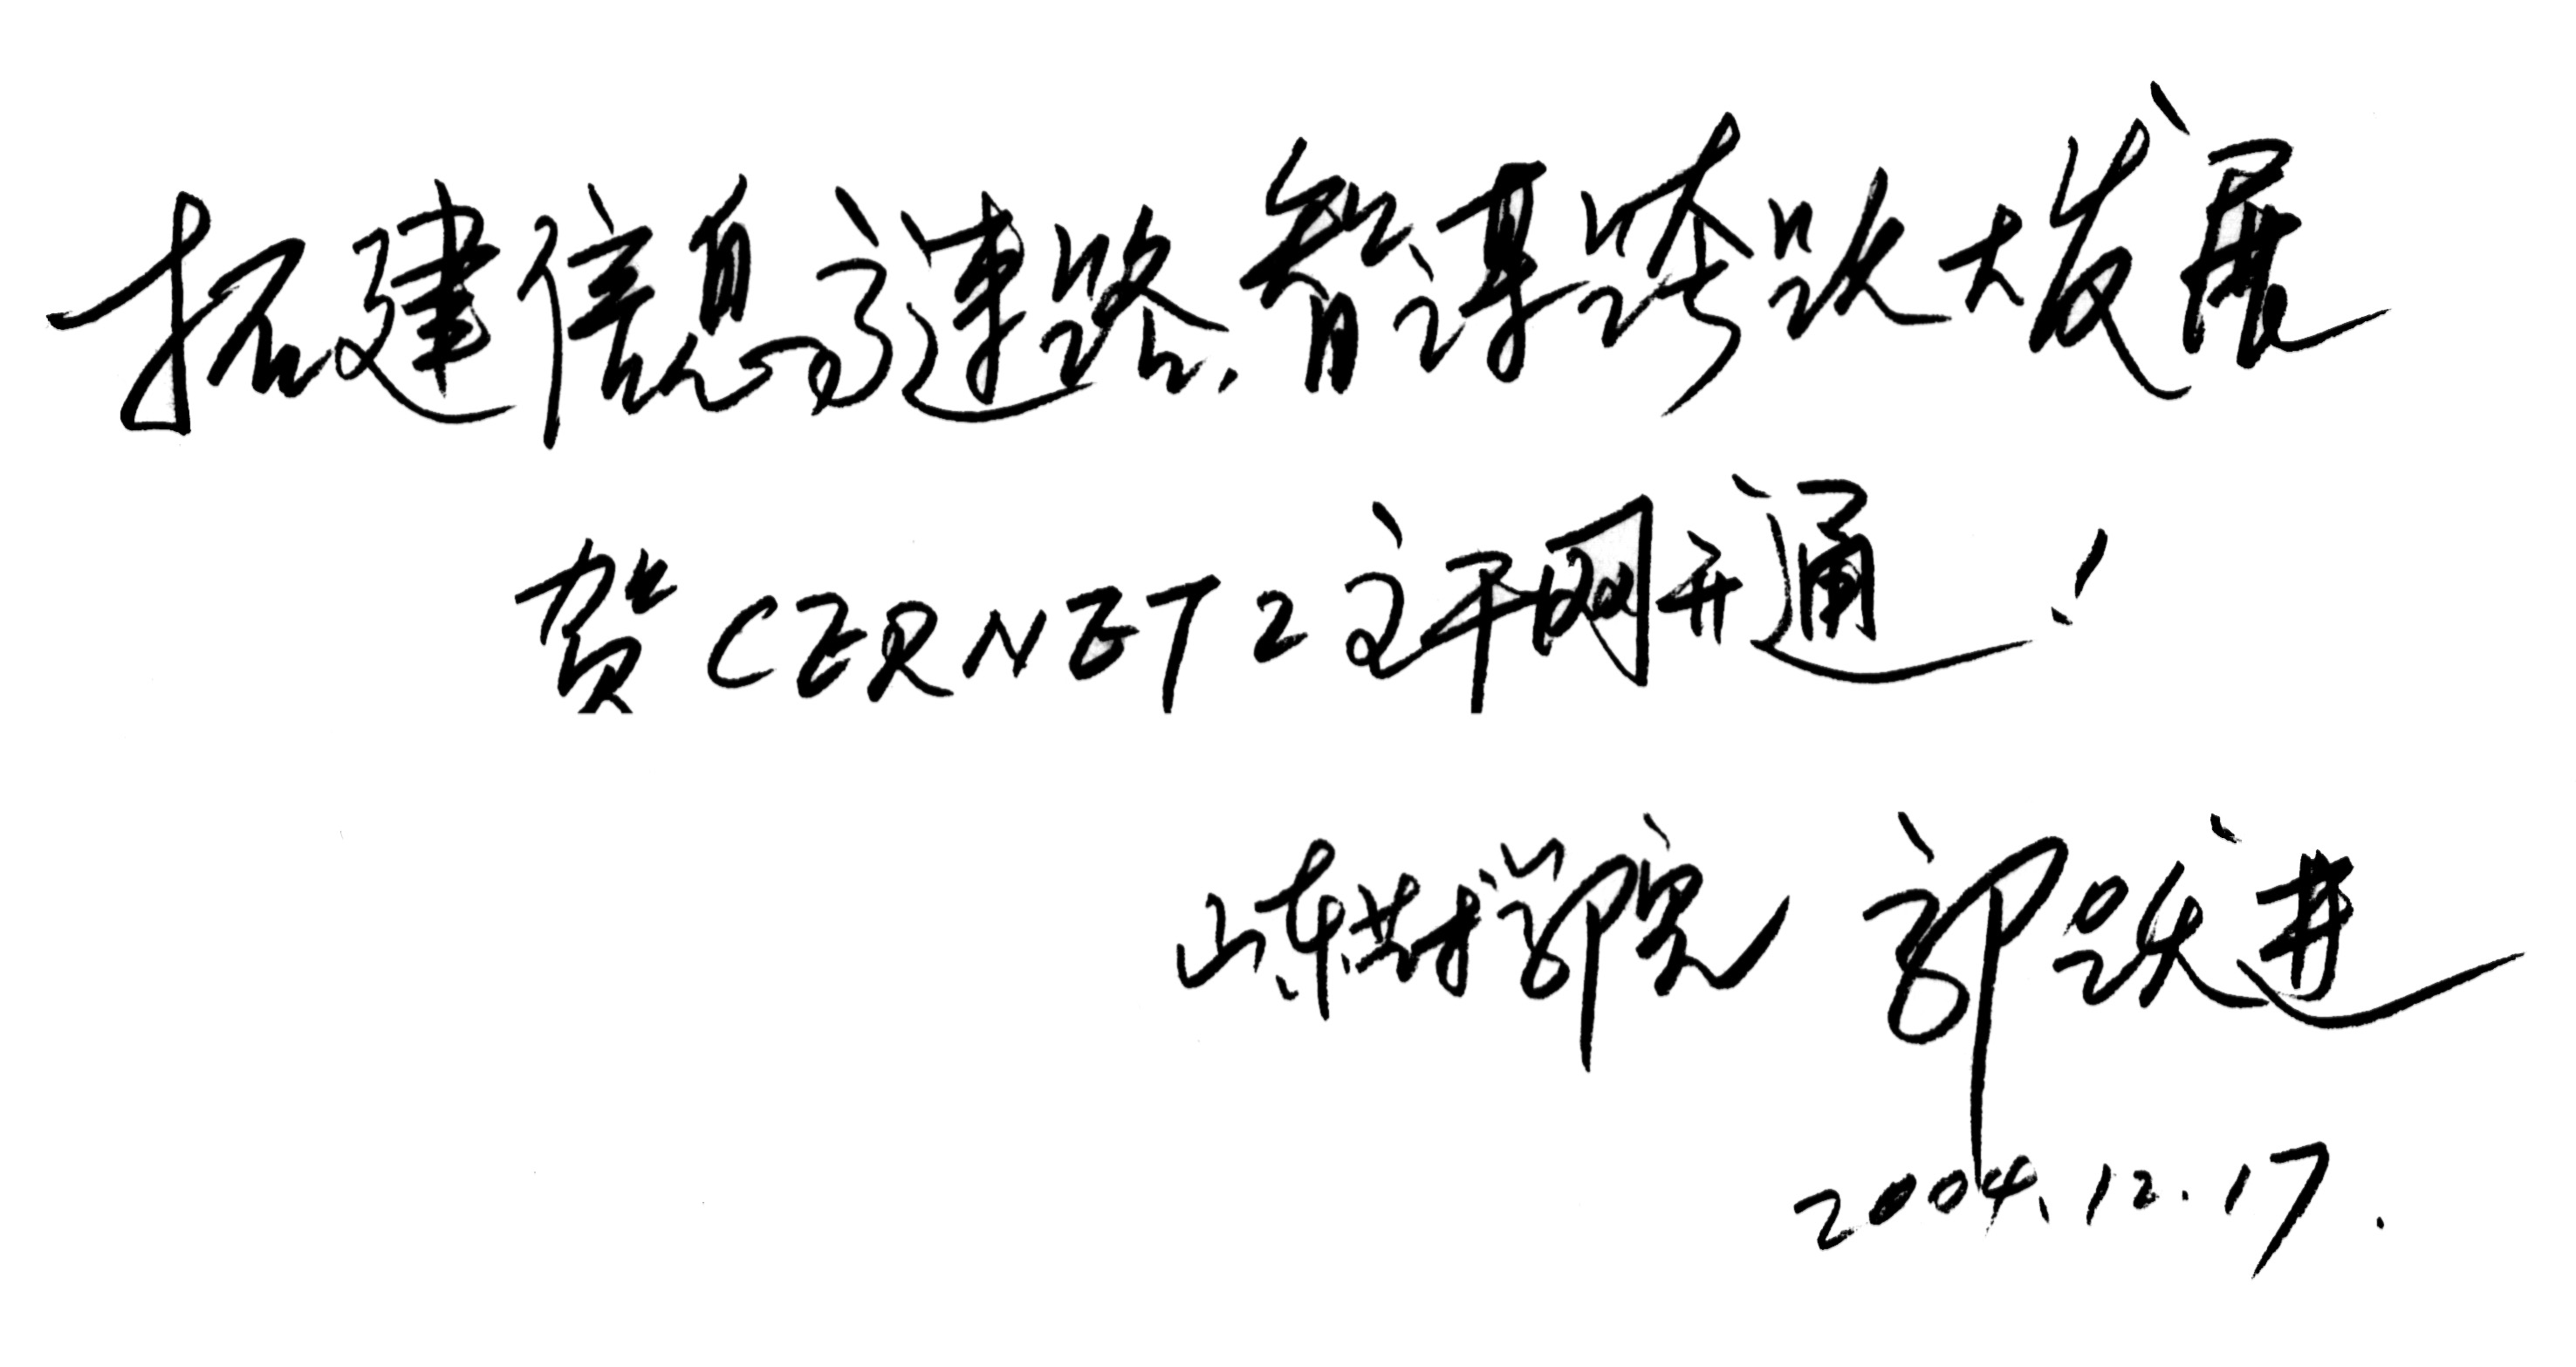 拓建信息高速路,智谋跨跃大发展
贺CERNET2主干网开通!
山东艺术学院 郭跃进
2004.12.17.